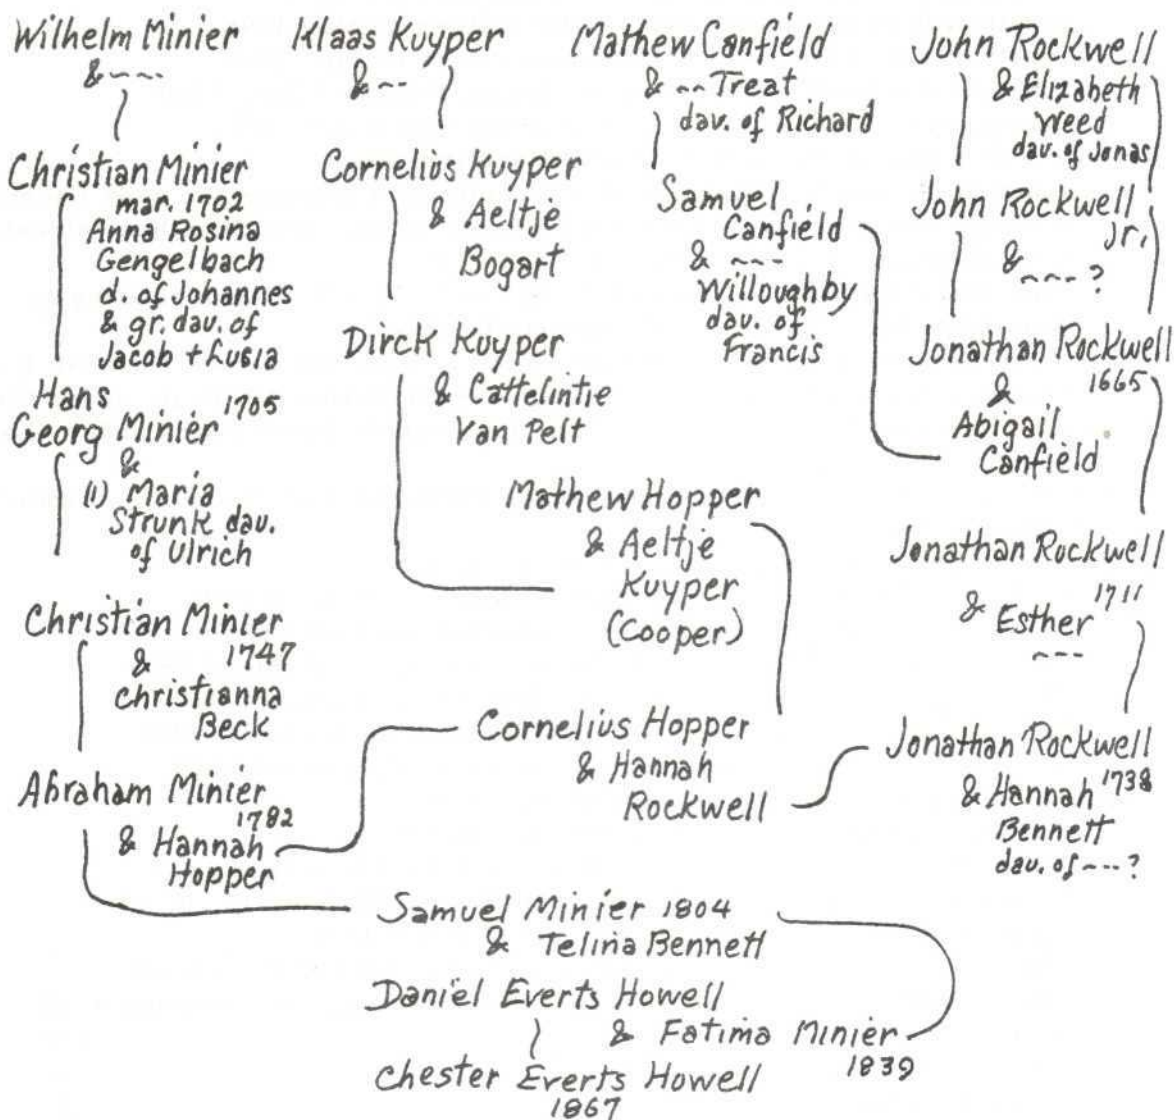 Wilhelm Minier
& ~~~
Christian Minier
mar. 1702
Anna Rosina
Gengelbach
d. of Johannes
& gr. dav. of
Jacob + Lusia
Hans
Georg Minier 1705
&
(1) Maria
Strunk dav.
of Ulrich
Christian Minier
& 1747
Christianna
Beck
Abraham Minier
1782
& Hannah
Hopper
Klaas Kuyper
& ~~
Cornelius Kuyper
& Aeltje
Bogart
Dirck Kuyper
& Cattelintie
Van Pelt
Mathew Hopper
& Aeltje
Kuyper
(Cooper)
Cornelius Hopper
& Hannah
Rockwell
Mathew Canfield
& ~~ Treat
dav. of Richard
Samuel
Canfield
& ~~~
Willoughby
dav. of
Francis
John Rockwell
& Elizabeth
Weed
dav. of Jonas
John Rockwell
Jr.
& ~~~ ?
Jonathan Rockwell
& 1665
Abigail
Canfield
Jonathan Rockwell
1711
& Esther
~~~
Jonathan Rockwell
& Hannah 1738
Bennett
dav. of ~~~ ?
Samuel Minier 1804
& Telina Bennett
Daniel Everts Howell
& Fatima Minier
1839
Chester Everts Howell
1867